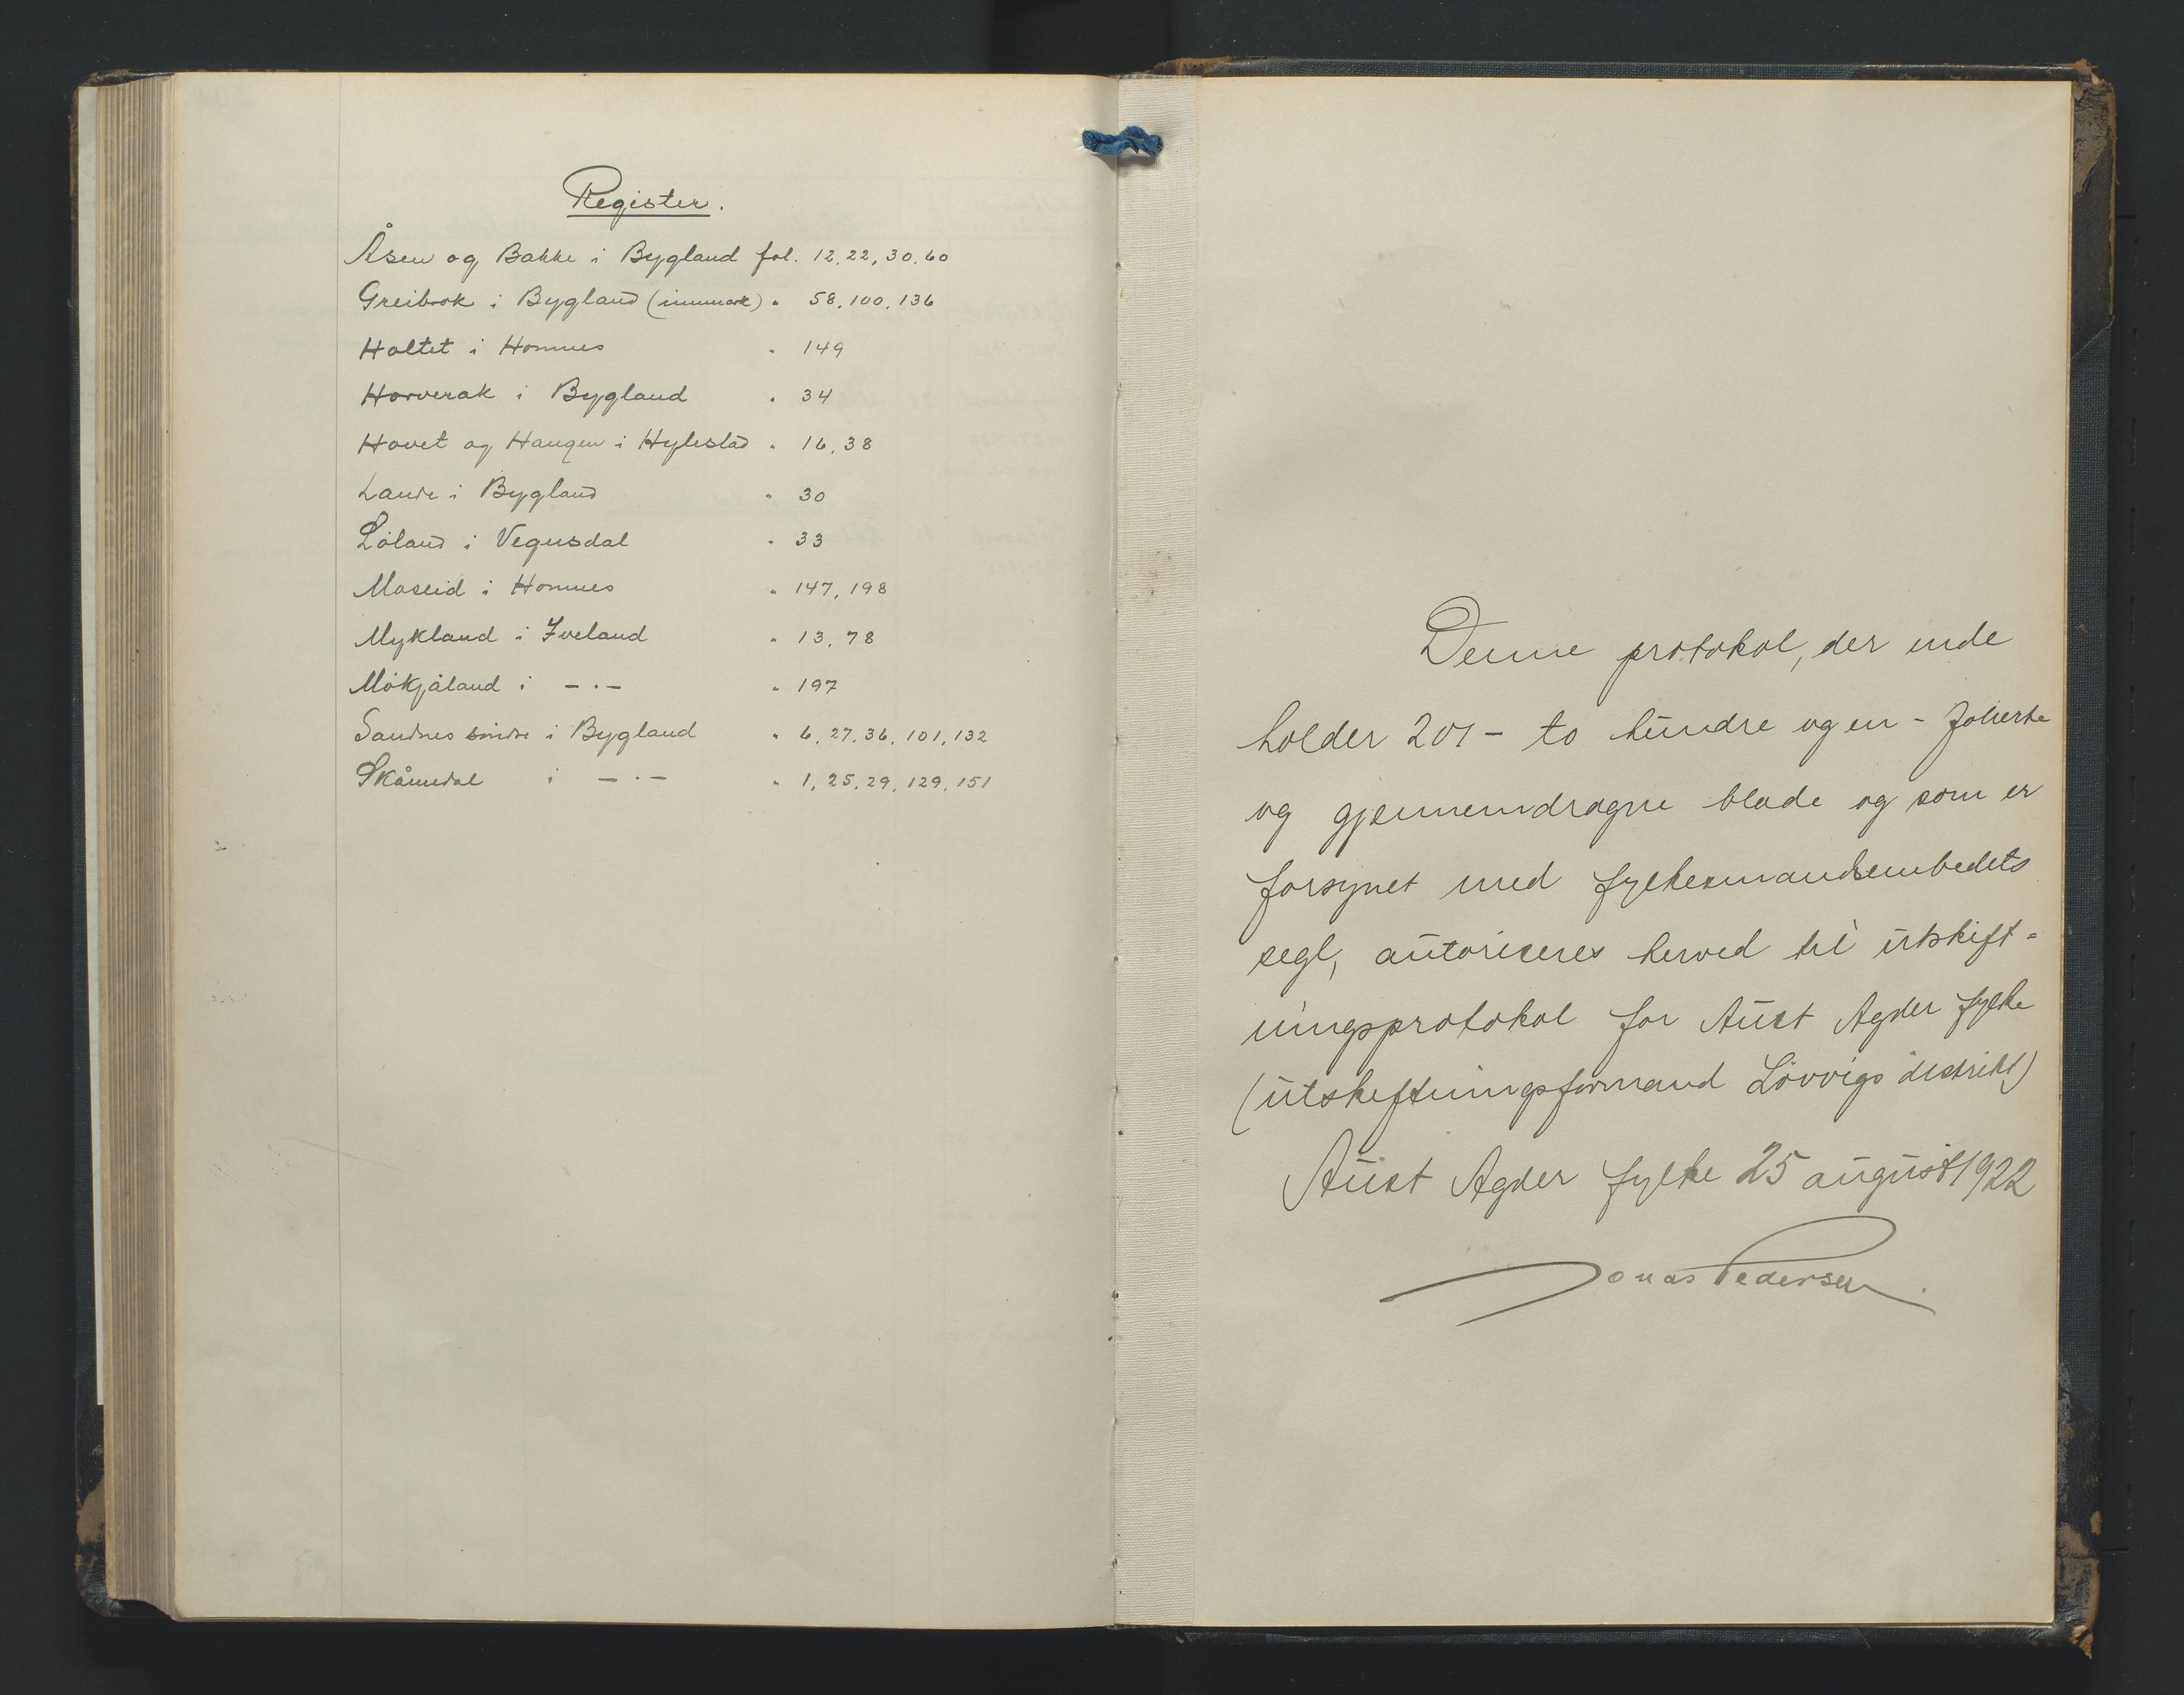 Register.
Åsen og Bakke i Bygland fol. 12, 22, 30, 60
Greibrok i Bygland (innmark) " 58, 100, 136
Holtet i Hornnes " 149
Horverak i Bygland " 34
Hovet og Haugen i Hylestad " 16, 38
Lande i Bygland " 30
Löland i Vegusdal " 33
Moseid i Hornnes " 147, 198
Mykland i Iveland " 13, 78
Mökjåland i - . - " 197
Sandnes sindre i Bygland " 6, 27, 36, 101, 132
Skåmedal i - . - " 1, 25, 29, 129, 151
Denne protokol, der inde
holder 201 - to hundre og en - folierte
og gjennemdragne blade og som er
forsynet med fylkesmandsembedets
segl, autoriseres herved til utskift=
ningsprotokol for Aust Agder fylke
(utskiftningsformand Lövvigs distrikt)
Aust Agder fylke 25 august 1922
Jonas Pedersen.